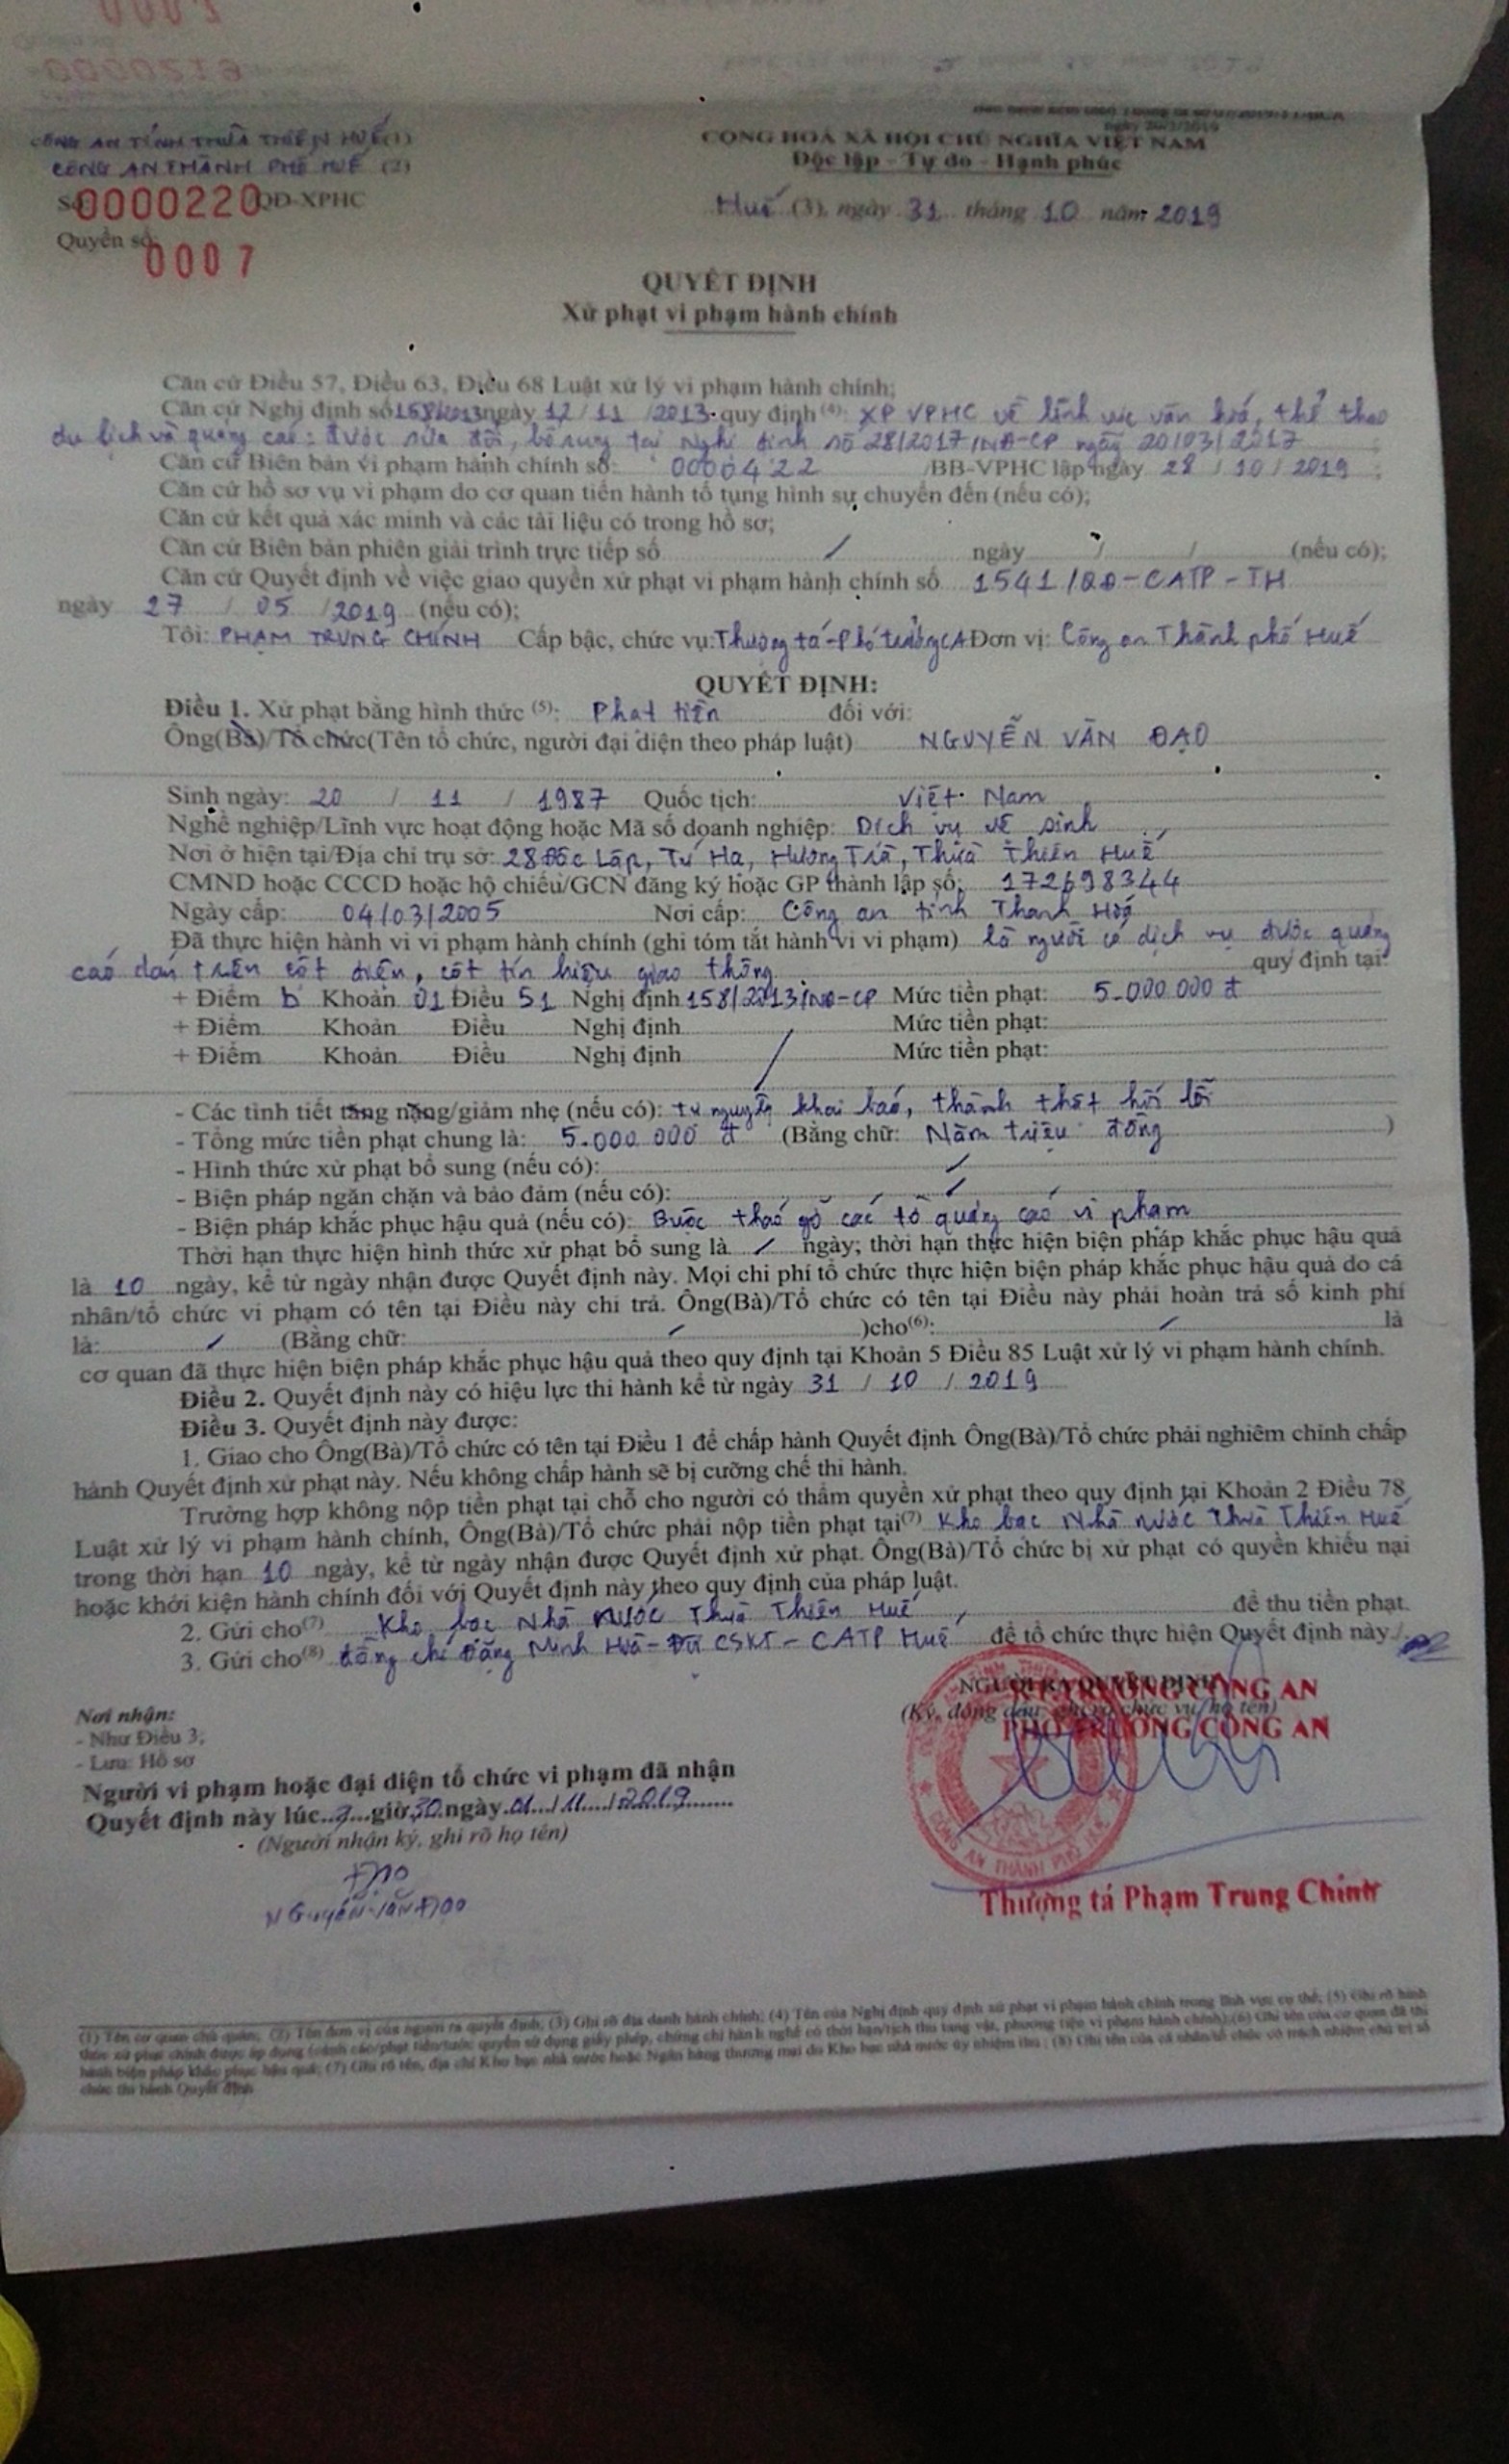 0007
0000219
CÔNG AN TỈNH THỪA THIÊN HUẾ(1)
CÔNG AN THÀNH PHỐ HUẾ (2)
Số 0000220 QĐ-XPHC
Quyển số: 0007
CỘNG HOÀ XÃ HỘI CHỦ NGHĨA VIỆT NAM
Độc lập - Tự do - Hạnh phúc
Huế (3), ngày 31 tháng 10 năm 2019
QUYẾT ĐỊNH
Xử phạt vi phạm hành chính
Căn cứ Điều 57, Điều 63, Điều 68 Luật xử lý vi phạm hành chính;
Căn cứ Nghị định số 158/2013 ngày 12/11/2013 quy định (4): XP VPHC về lĩnh vực văn hoá, thể thao
du lịch và quảng cáo: được sửa đổi, bổ sung tại Nghị định số 28/2017/NĐ-CP ngày 20/03/2017 ;
Căn cứ Biên bản vi phạm hành chính số: 0000422 /BB-VPHC lập ngày 28 / 10 / 2019 ;
Căn cứ hồ sơ vụ vi phạm do cơ quan tiến hành tố tụng hình sự chuyển đến (nếu có);
Căn cứ kết quả xác minh và các tài liệu có trong hồ sơ;
Căn cứ Biên bản phiên giải trình trực tiếp số / ngày / / (nếu có);
Căn cứ Quyết định về việc giao quyền xử phạt vi phạm hành chính số 1541/QĐ-CATP-TH
ngày 27 / 05 / 2019 (nếu có);
Tôi: PHẠM TRUNG CHÍNH Cấp bậc, chức vụ: Thượng tá-Phó trưởng CA Đơn vị: Công an Thành phố Huế
QUYẾT ĐỊNH:
Điều 1. Xử phạt bằng hình thức (5): Phạt tiền đối với:
Ông(Bà)/Tổ chức(Tên tổ chức, người đại diện theo pháp luật) NGUYỄN VĂN ĐẠO
Sinh ngày: 20 / 11 / 1987 Quốc tịch: Việt Nam
Nghề nghiệp/Lĩnh vực hoạt động hoặc Mã số doanh nghiệp: Dịch vụ vệ sinh
Nơi ở hiện tại/Địa chỉ trụ sở: 28 Độc Lập, Tứ Hạ, Hương Trà, Thừa Thiên Huế
CMND hoặc CCCD hoặc hộ chiếu/GCN đăng ký hoặc GP thành lập số: 172698344
Ngày cấp: 04/03/2005 Nơi cấp: Công an tỉnh Thanh Hoá
Đã thực hiện hành vi vi phạm hành chính (ghi tóm tắt hành vi vi phạm) là người có dịch vụ được quảng
cáo dán trên cột điện, cột tín hiệu giao thông quy định tại:
+ Điểm b Khoản 01 Điều 51 Nghị định 158/2013/NĐ-CP Mức tiền phạt: 5.000.000 đ
+ Điểm Khoản Điều Nghị định Mức tiền phạt:
+ Điểm Khoản Điều Nghị định Mức tiền phạt:
- Các tình tiết tăng nặng/giảm nhẹ (nếu có): tự nguyện khai báo, thành thật hối lỗi
- Tổng mức tiền phạt chung là: 5.000.000 đ (Bằng chữ: Năm triệu đồng )
- Hình thức xử phạt bổ sung (nếu có): /
- Biện pháp ngăn chặn và bảo đảm (nếu có): /
- Biện pháp khắc phục hậu quả (nếu có): Buộc tháo gỡ các tờ quảng cáo vi phạm
Thời hạn thực hiện hình thức xử phạt bổ sung là / ngày; thời hạn thực hiện biện pháp khắc phục hậu quả
là 10 ngày, kể từ ngày nhận được Quyết định này. Mọi chi phí tổ chức thực hiện biện pháp khắc phục hậu quả do cá
nhân/tổ chức vi phạm có tên tại Điều này chi trả. Ông(Bà)/Tổ chức có tên tại Điều này phải hoàn trả số kinh phí
là: / (Bằng chữ: / )cho(6): / là
cơ quan đã thực hiện biện pháp khắc phục hậu quả theo quy định tại Khoản 5 Điều 85 Luật xử lý vi phạm hành chính.
Điều 2. Quyết định này có hiệu lực thi hành kể từ ngày 31 / 10 / 2019
Điều 3. Quyết định này được:
1. Giao cho Ông(Bà)/Tổ chức có tên tại Điều 1 để chấp hành Quyết định. Ông(Bà)/Tổ chức phải nghiêm chỉnh chấp
hành Quyết định xử phạt này. Nếu không chấp hành sẽ bị cưỡng chế thi hành.
Trường hợp không nộp tiền phạt tại chỗ cho người có thẩm quyền xử phạt theo quy định tại Khoản 2 Điều 78
Luật xử lý vi phạm hành chính, Ông(Bà)/Tổ chức phải nộp tiền phạt tại(7) Kho bạc Nhà nước Thừa Thiên Huế
trong thời hạn 10 ngày, kể từ ngày nhận được Quyết định xử phạt. Ông(Bà)/Tổ chức bị xử phạt có quyền khiếu nại
hoặc khởi kiện hành chính đối với Quyết định này theo quy định của pháp luật.
2. Gửi cho(7) Kho bạc Nhà nước Thừa Thiên Huế để thu tiền phạt.
3. Gửi cho(8) đồng chí Đặng Minh Hoà - Đội CSKT - CATP Huế để tổ chức thực hiện Quyết định này./.
NGƯỜI RA QUYẾT ĐỊNH
(Ký, đóng dấu, ghi rõ chức vụ, họ tên)
KT. TRƯỞNG CÔNG AN
PHÓ TRƯỞNG CÔNG AN
CÔNG AN THÀNH PHỐ HUẾ
Thượng tá Phạm Trung Chính
Nơi nhận:
- Như Điều 3;
- Lưu: Hồ sơ
Người vi phạm hoặc đại diện tổ chức vi phạm đã nhận
Quyết định này lúc 7 giờ 30 ngày 01 / 11 / 2019
(Người nhận ký, ghi rõ họ tên)
Đạo
Nguyễn Văn Đạo
(1) Tên cơ quan chủ quản; (2) Tên đơn vị của người ra quyết định; (3) Ghi rõ địa danh hành chính; (4) Tên của Nghị định quy định xử phạt vi phạm hành chính trong lĩnh vực cụ thể; (5) Ghi rõ hình
thức xử phạt chính được áp dụng (cảnh cáo/phạt tiền/tước quyền sử dụng giấy phép, chứng chỉ hành nghề có thời hạn/tịch thu tang vật, phương tiện vi phạm hành chính);(6) Ghi tên của cơ quan đã thi
hành biện pháp khắc phục hậu quả; (7) Ghi rõ tên, địa chỉ Kho bạc nhà nước hoặc Ngân hàng thương mại do Kho bạc nhà nước ủy nhiệm thu ; (8) Ghi tên của cá nhân/tổ chức có trách nhiệm chủ trì tổ
chức thi hành Quyết định